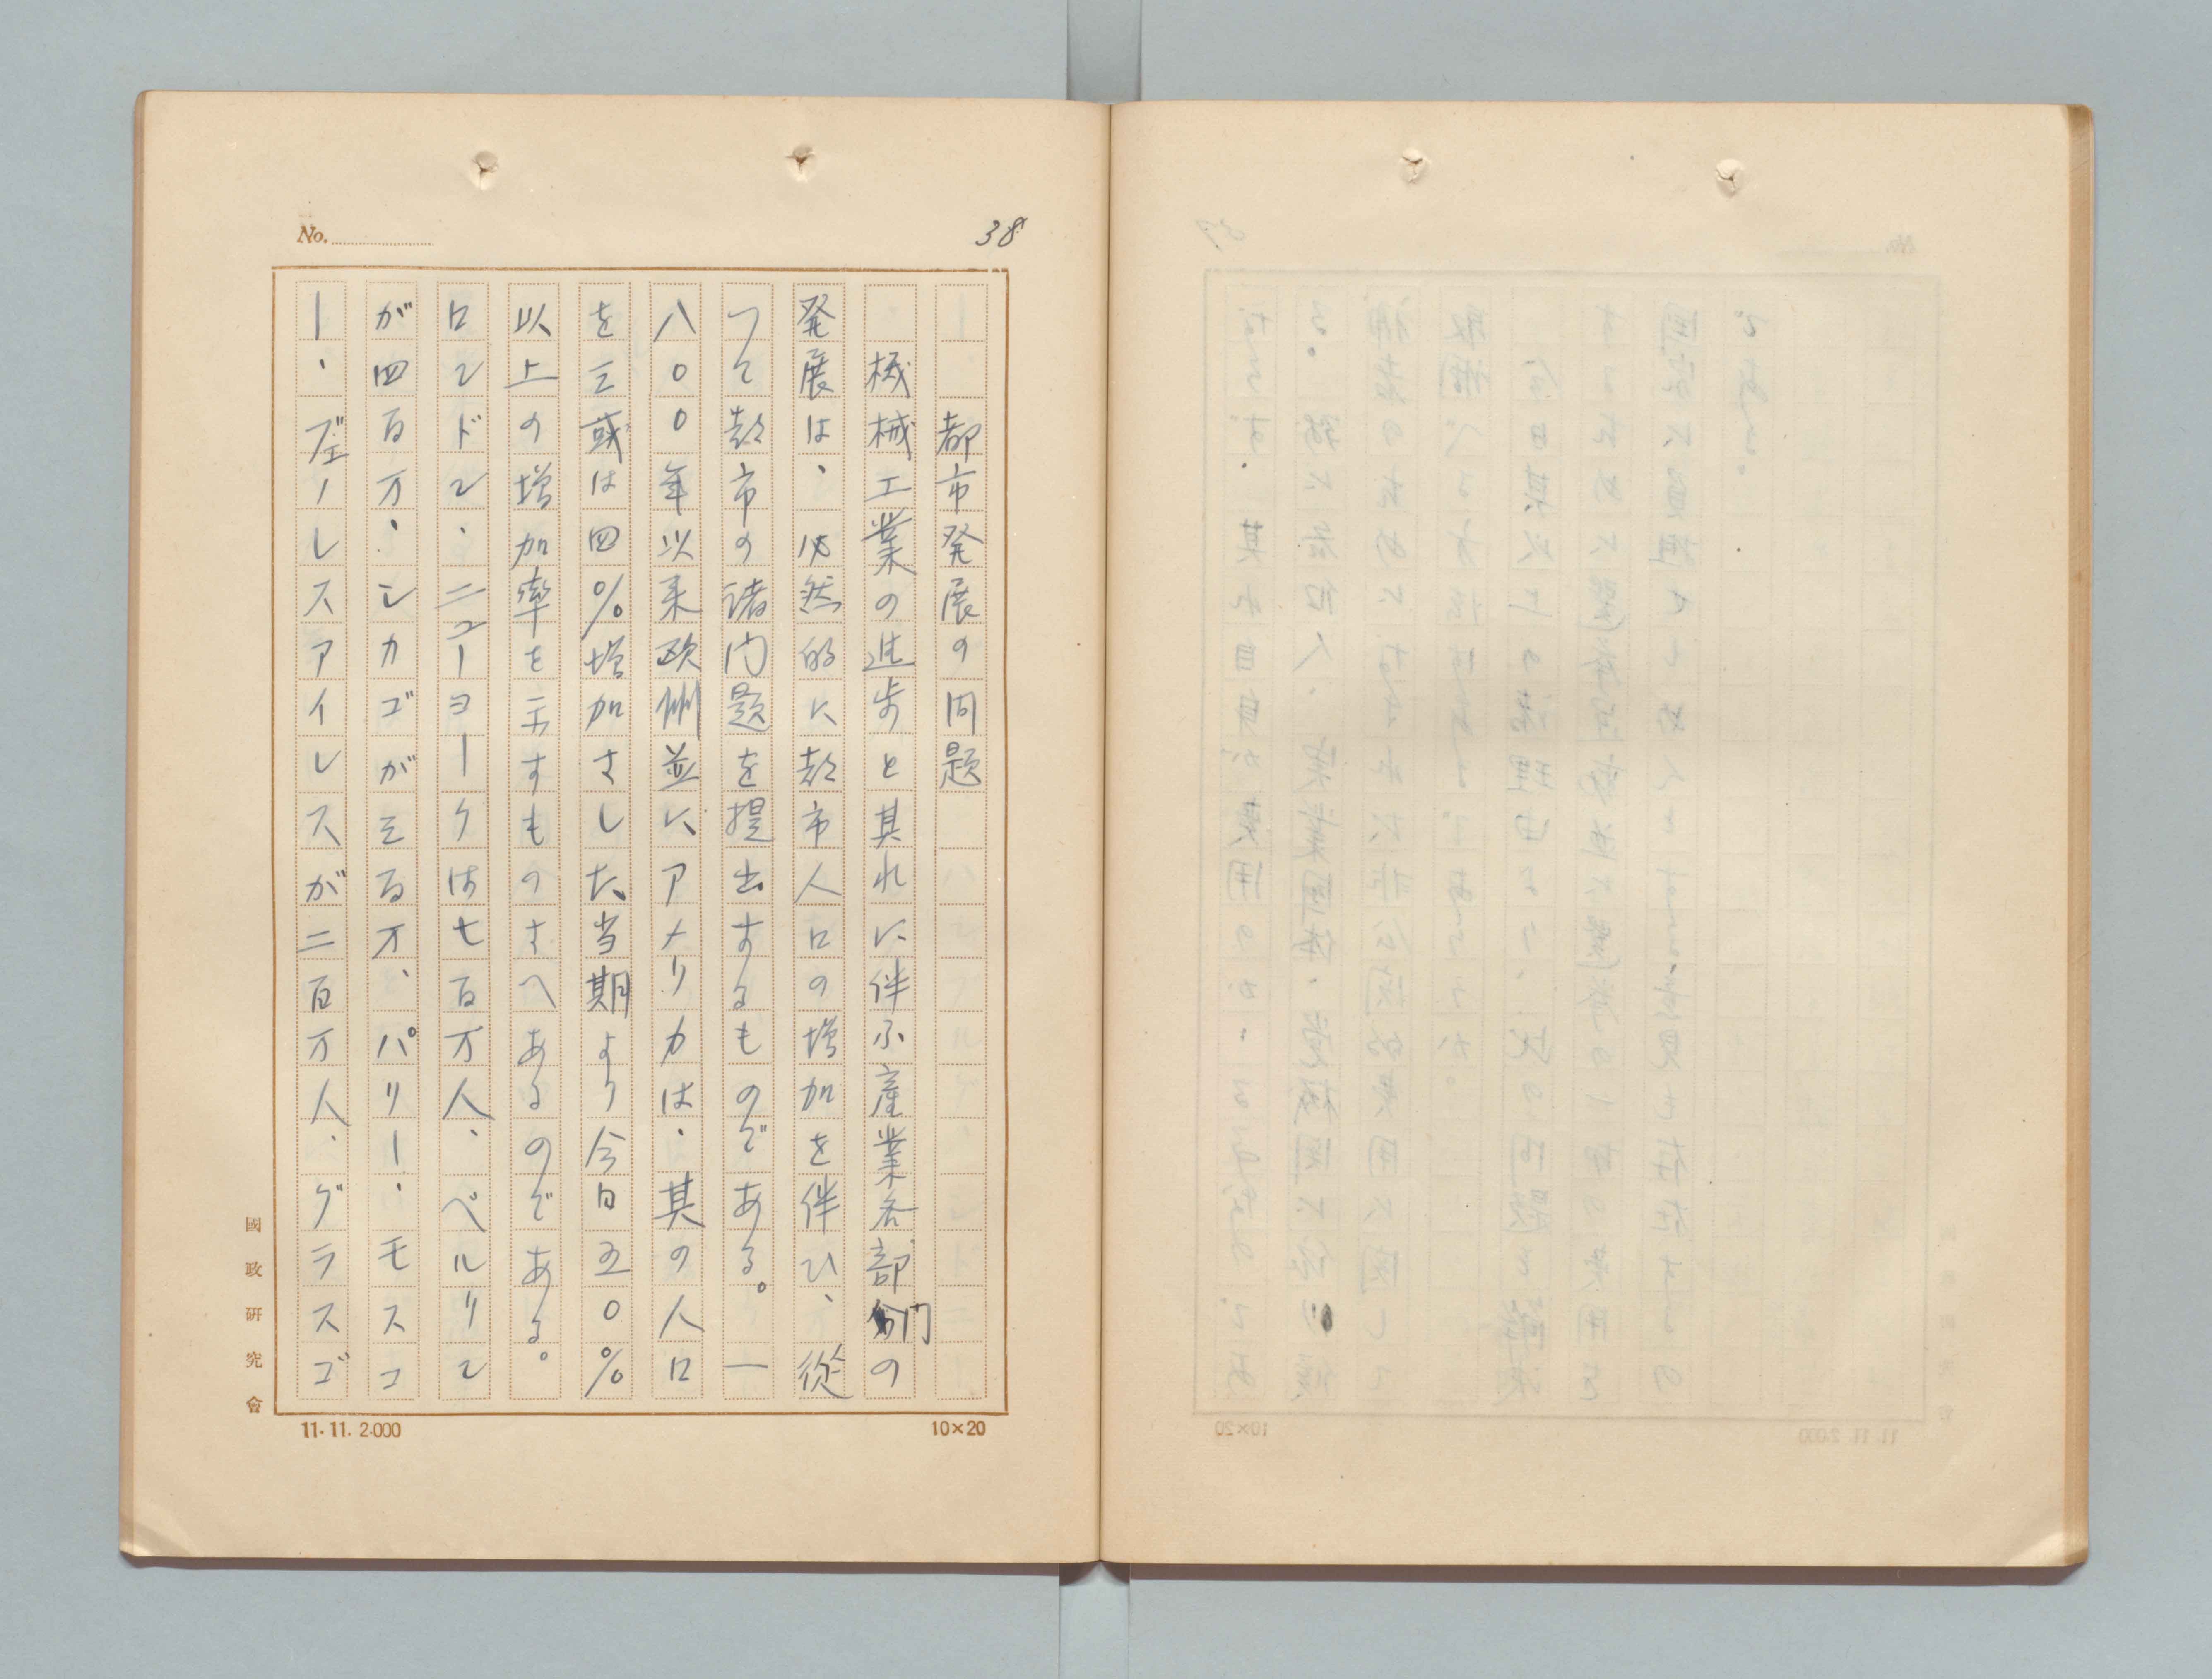 38
No.
都市発展の問題
機械工業の進歩と其れに伴ふ産業各部門の
発展は、必然的に都市人口の増加を伴ひ、従
つて都市の諸問題を提出するものである。一
八〇〇年以来欧州並に、アメリカは、其の人口
を三或は四%増加さした、当期より今日五〇%
以上の増加率を示すものすへあるのである。
ロンドン、ニューヨークは七百万人、ベルリン
が四百万、シカゴが三百万、パリー、モスコ
ー、ブエノレスアイレスが二百万人、グラスゴ
國政研究會
11.11. 2.000
10×20